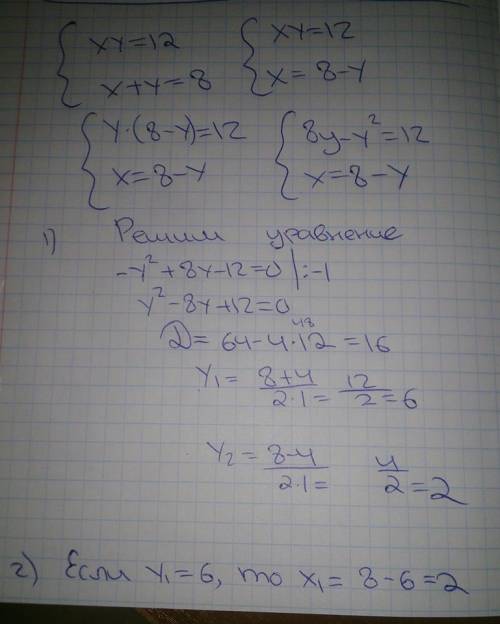 { xy=12
x+y=8
{ xy=12
x=8-y
{ y·(8-y)=12
x=8-y
{ 8y-y²=12
x=8-y
1) Решим уравнение
-y²+8y-12=0 |:-1
y²-8y+12=0
48
D=64-4·12=16
y₁= 8+4/2·1= 12/2=6
y₂= 8-4/2·1= 4/2=2
2) Если y₁=6, то x₁= 8-6=2